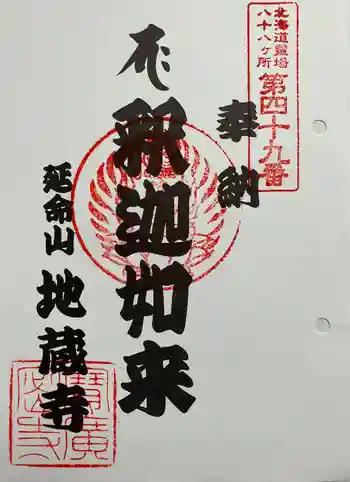 北海道霊場
八十八ヶ所
第四十九番
奉納
釈迦如来
延命山
地蔵寺